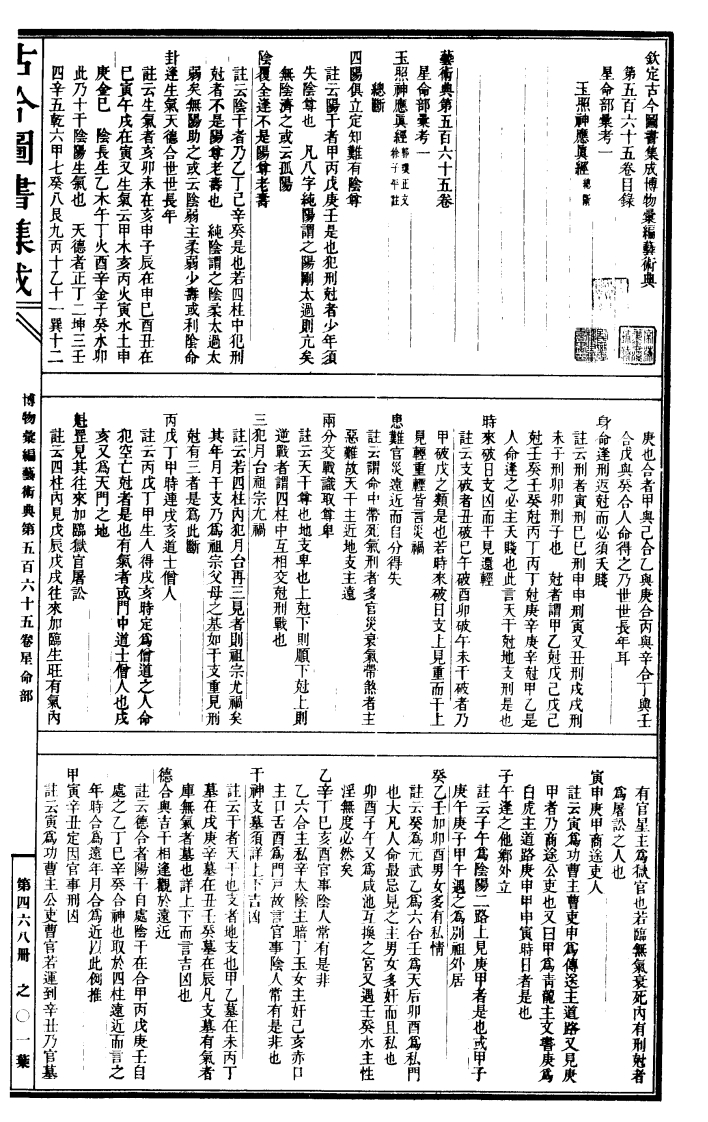 欽定古今圖書集成博物彙編藝術典
第五百六十五卷目錄
星命部彙考一
玉照神應眞經 總斷
藝術典第五百六十五卷
星命部彙考一
玉照神應眞經 郭璞正文 徐子平註
總斷
四陽俱立定知難有陰尊
註云陽干者甲丙戊庚壬是也犯刑尅者少年須
失陰尊也 凡八字純陽謂之陽剛太過則亢矣
無陰濟之或云孤陽
陰覆全逢不是陽尊老壽
註云陰干者乃乙丁己辛癸是也若四柱中犯刑
尅者不是陽尊老壽也 純陰謂之陰柔太過太
弱矣無陽助之或云陰弱主柔弱少壽或利陰命
卦逢生氣天德合世世長年
註云生氣者亥卯未在亥申子辰在申巳酉丑在
巳寅午戌在寅又生氣云甲木亥丙火寅水土申
庚金巳 陰長生乙木午丁火酉辛金子癸水卯
此乃十干陰陽生氣也 天德者正丁二坤三壬
四辛五乾六甲七癸八艮九丙十乙十一巽十二
庚也合者甲與己合乙與庚合丙與辛合丁與壬
合戊與癸合人命得之乃世世長年耳
身命逢刑返尅而必須夭賤
註云刑者寅刑巳巳刑申申刑寅又丑刑戌戌刑
未子刑卯卯刑子也 尅者謂甲乙尅戊己戊己
尅壬癸壬癸尅丙丁丙丁尅庚辛庚辛尅甲乙是
人命逢之必主夭賤也此言天干尅地支刑是也
時來破日支凶而干見還輕
註云支破者丑破巳午破酉卯破午未干破者乃
甲破戊之類是也若時來破日支上見重而干上
見輕重輕皆言災禍
患難官災遠近而自分得失
註云謂命中帶死氣刑者多官災衰氣帶煞者主
惡難故天干主近地支主遠
兩分交戰識取尊卑
註云天干尊也地支卑也上尅下則順下尅上則
逆戰者謂四柱中互相交尅刑戰也
三犯月台祖宗尤禍
註云若四柱內犯月台再三見者則祖宗尤禍矣
其年月干支乃爲祖宗父母之基如干支重見刑
尅有三者是爲此斷
丙戊丁甲時連戌亥道士僧人
註云丙戊丁甲生人得戌亥時定爲僧道之人命
犯空亡尅者是也有氣者或門中道士僧人也戌
亥又爲天門之地
魁罡見其往來加臨獄官屠訟
註云四柱內見戊辰戊戌往來加臨生旺有氣內
有官星主爲獄官也若臨無氣衰死內有刑尅者
爲屠訟之人也
寅申庚甲商途吏人
註云寅爲功曹主曹吏申爲傳送主道路又見庚
甲者乃商途公吏也又曰甲爲青龍主文書庚爲
白虎主道路庚申甲申寅時日者是也
子午逢之他鄉外立
註云子午爲陰陽二路上見庚甲者是也或甲子
庚午庚子甲午遇之爲別祖外居
癸乙壬加卯酉男女多有私情
註云癸爲元武乙爲六合壬爲天后卯酉爲私門
也大凡人命最忌見之主男女多奸而且私也
卯酉子午又爲咸池互換之宮又遇壬癸水主性
淫無度必然矣
乙辛丁己亥酉官事陰人常有是非
乙六合主私辛太陰主賠丁玉女主奸己亥赤口
主口舌酉爲門戸故言官事陰人常有是非也
干神支墓須詳上下吉凶
註云干者天干也支者地支也甲乙墓在未丙丁
墓在戌庚辛墓在丑壬癸墓在辰凡支墓有氣者
庫無氣者墓也詳上下而言吉凶也
德合與吉干相逢觀於遠近
註云德合者陽干自處陰干在合甲丙戊庚壬自
處之乙丁己辛癸合神也取於四柱遠近而言之
年時合爲遠年月合爲近以此例推
甲寅辛丑定因官事刑凶
註云寅爲功曹主公吏曹官若運到辛丑乃官墓
古今圖書集成
博物彙編藝術典第五百六十五卷星命部
第四六八冊 之〇一葉